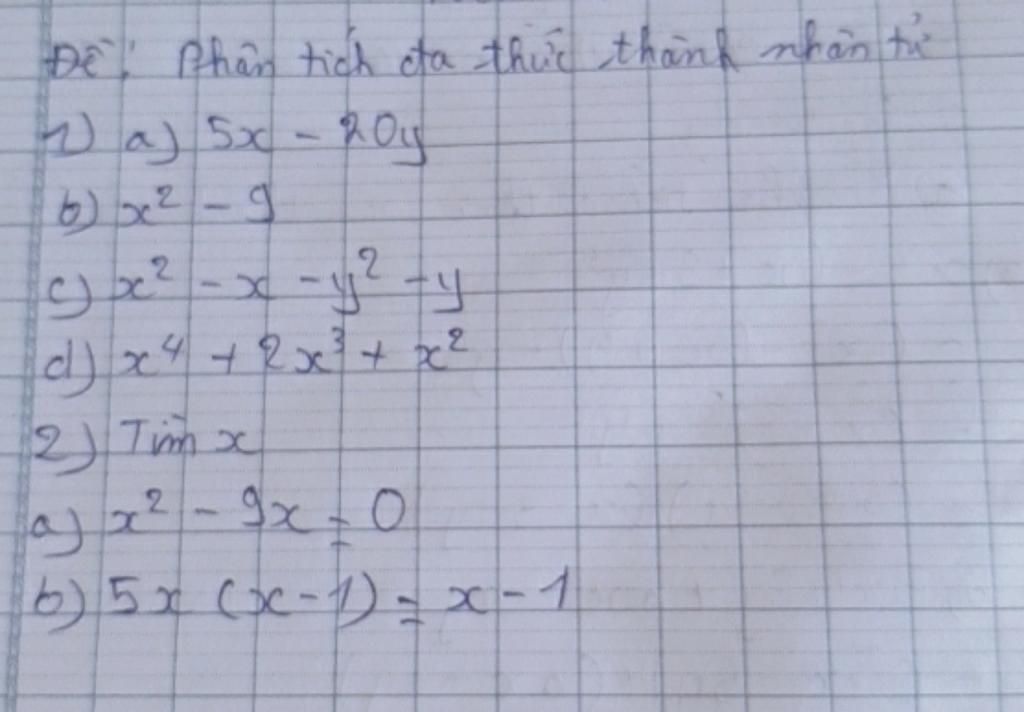 Đề: Phân tích đa thức thành nhân tử
1) a) 5x - 20y
b) x² - 9
c) x² - x - y² - y
d) x⁴ + 2x³ + x²
2) Tìm x
a) x² - 9x = 0
b) 5x (x - 1) = x - 1